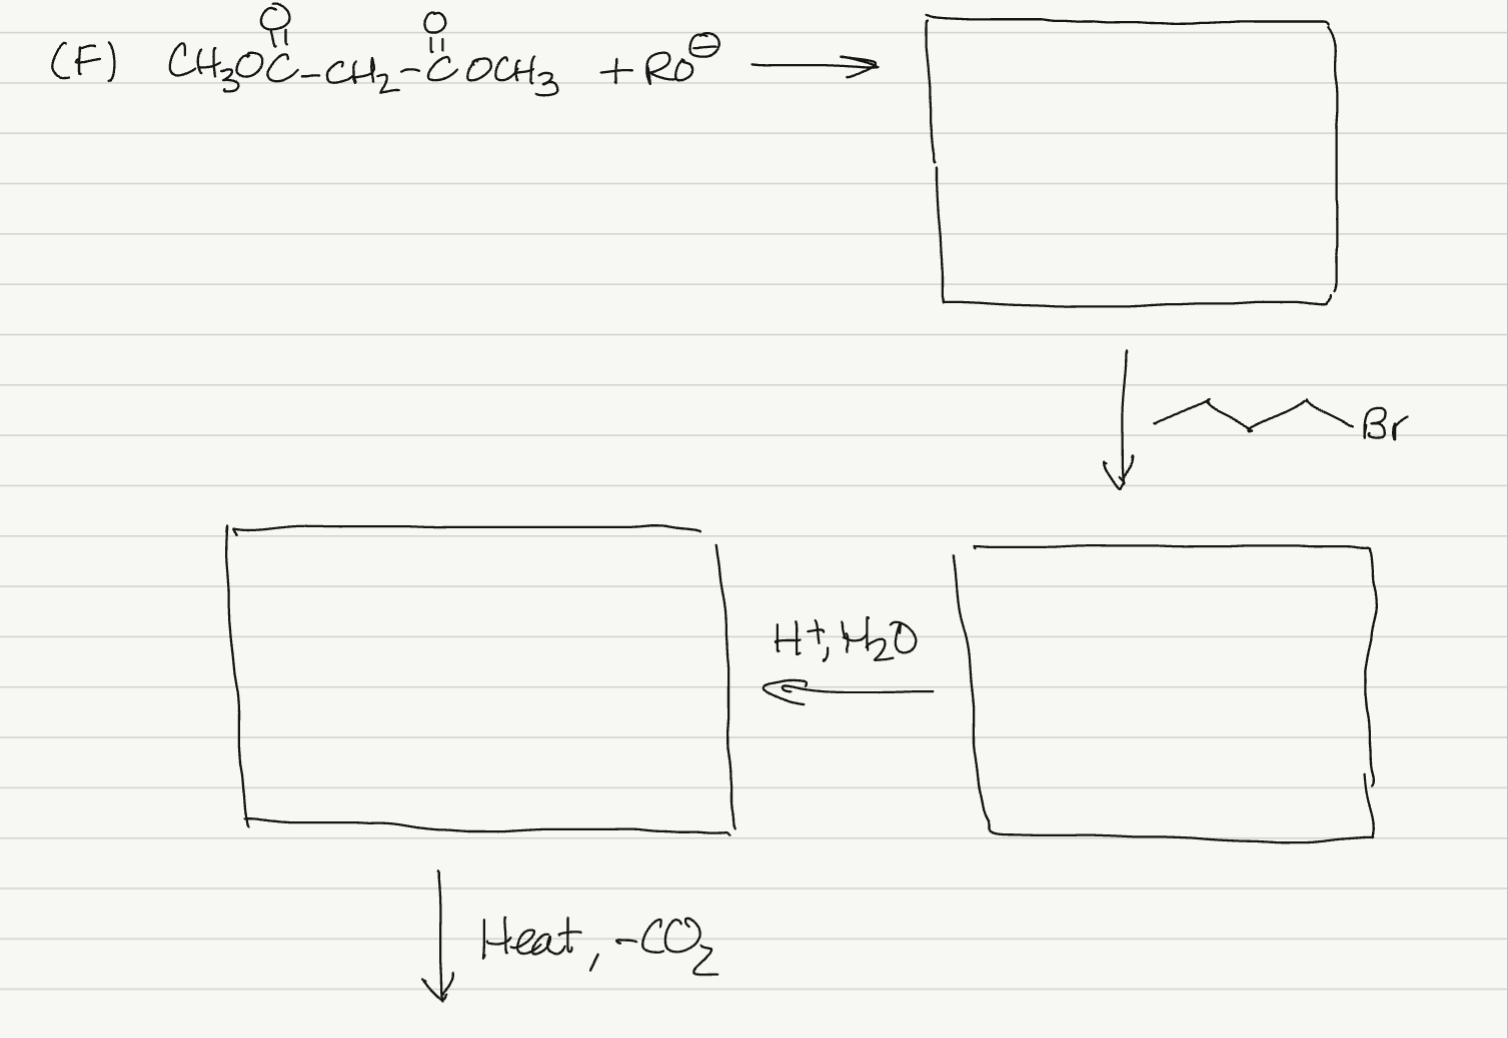 (F) CH₃OC(=O)-CH₂-C(=O)OCH₃ + RO⊖ ⟶
Br
H⁺, H₂O
Heat, -CO₂